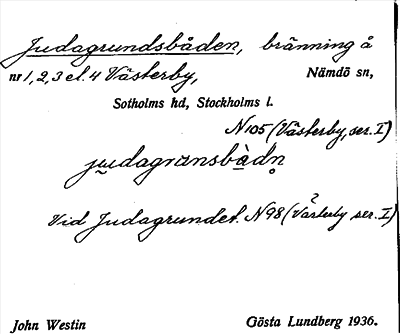 Judagrundsbåden, bränning å
nr 1, 2, 3 el. 4 Västerby, Nämdö sn,
Sotholms hd, Stockholms l.
N 105 (Västerby, ser. I)
judagransbàdn̥
?
Vid Judagrundet. N 98 (Västerby ser. I)
John Westin Gösta Lundberg 1936.